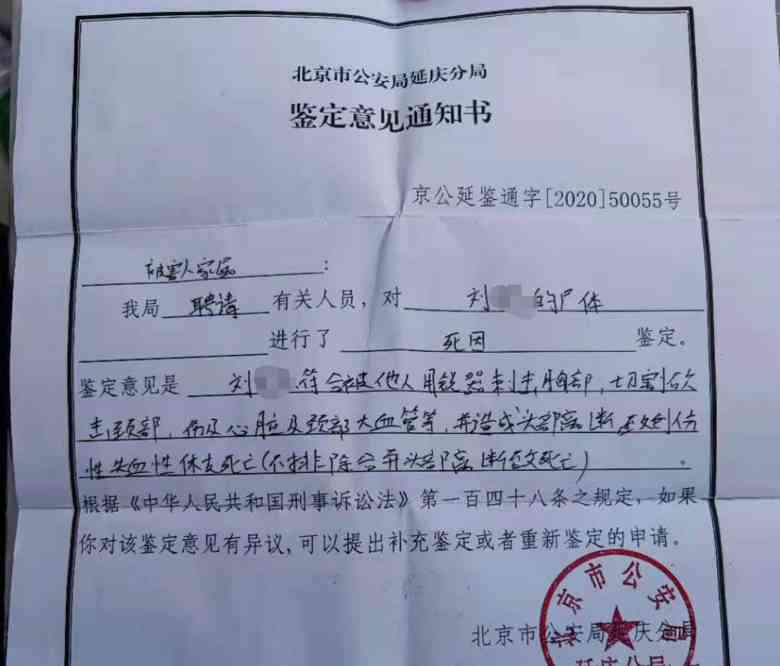 北京市公安局延庆分局
鉴定意见通知书
京公延鉴通字[2020]50055号
被害人家属：
我局 聘请 有关人员，对 刘 的尸体
进行了 死因 鉴定。
鉴定意见是 刘 符合被他人用锐器刺击胸部，切割砍
击颈部，伤及心脏及颈部大血管等，并造成头部离断致创伤
性失血性休克死亡(不排除合并头部离断致死亡)。
根据《中华人民共和国刑事诉讼法》第一百四十八条之规定，如果
你对该鉴定意见有异议，可以提出补充鉴定或者重新鉴定的申请。
北京市公安局延庆分局
北京市公安局
延庆分局